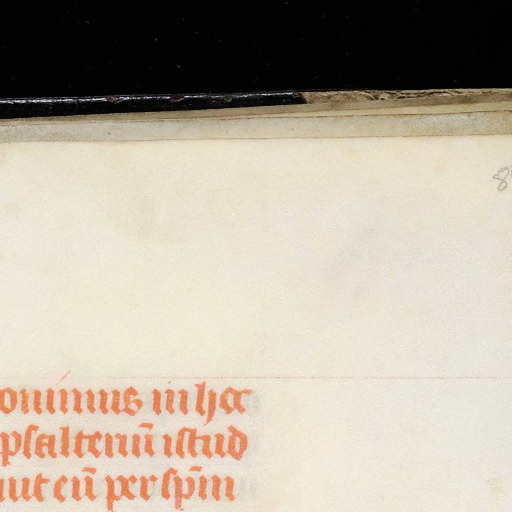 8
ominus in hec
psalteriū istud
aut eū per spm̄